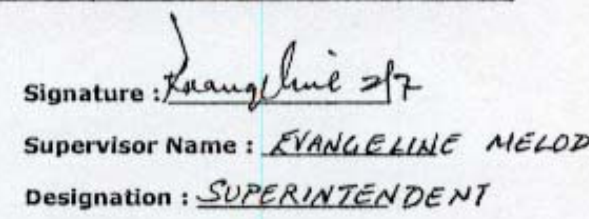 Signature : Evangeline 2/7
Supervisor Name : EVANGELINE MELOD
Designation : SUPERINTENDENT